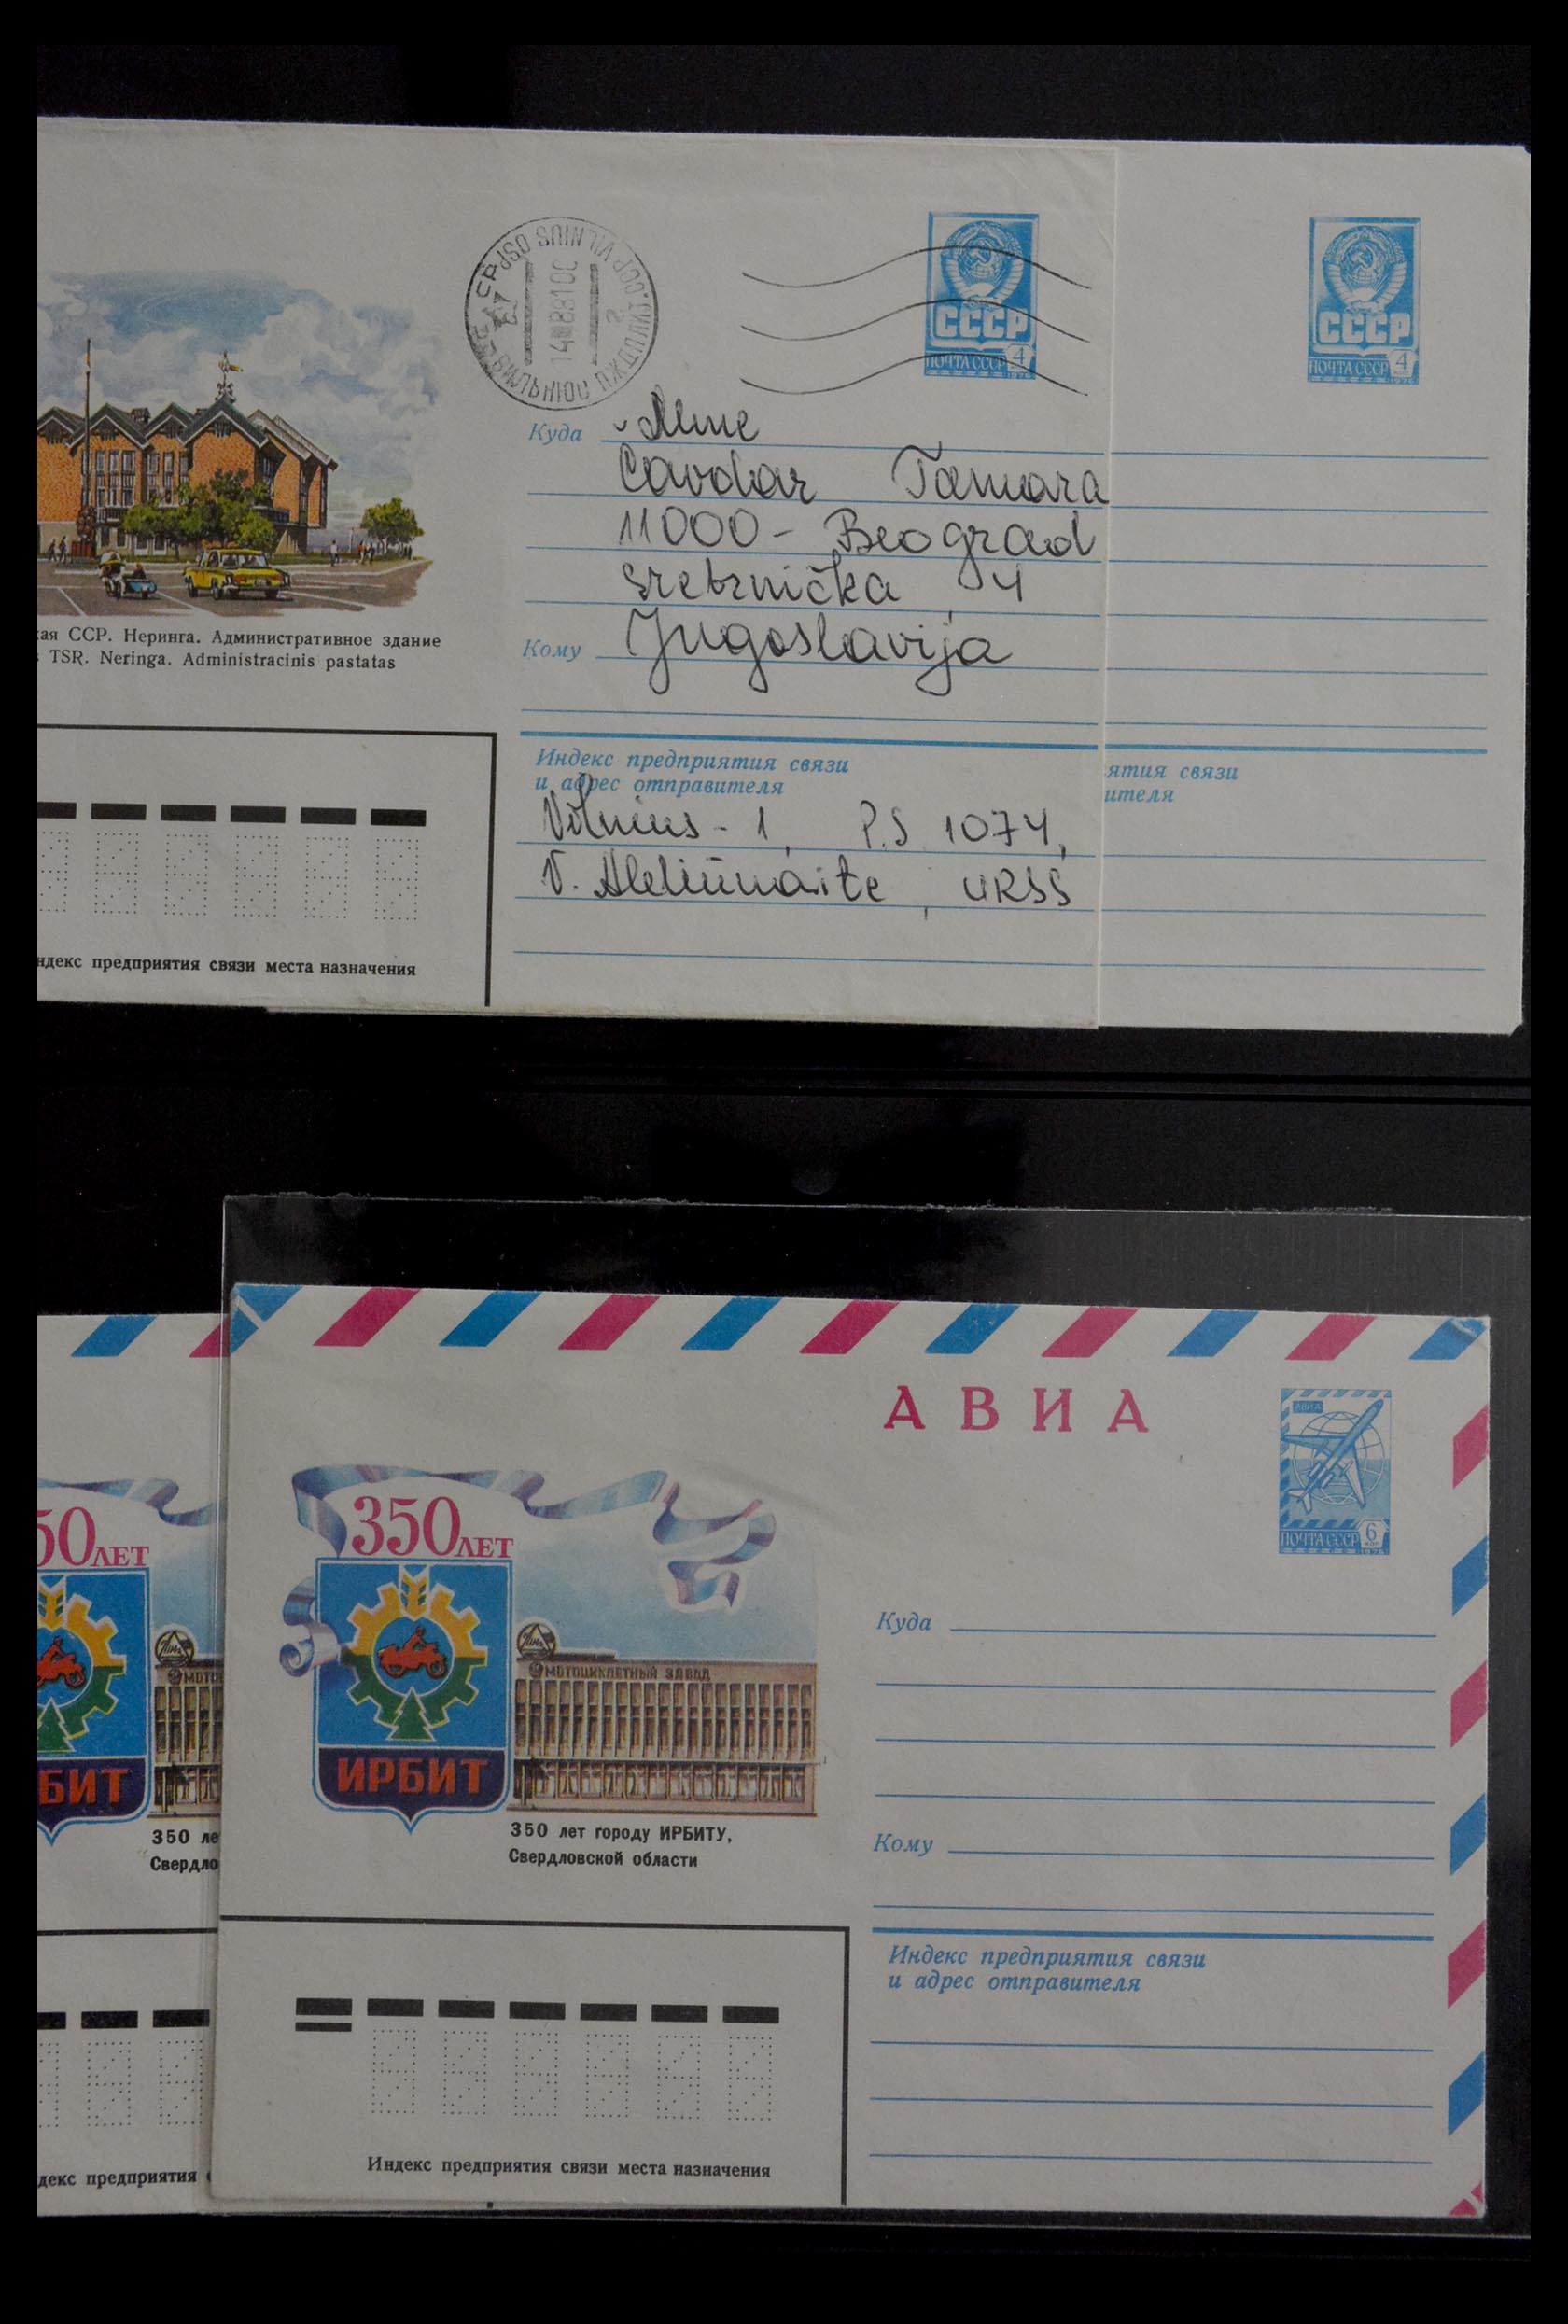 VILNIUS
ВИЛЬНЮС
СССР
ПОЧТА СССР 4
1976
СССР
ПОЧТА СССР 4
1976
Куда Mme
Čavdar Tamara
11000 - Beograd
Srebrnička 4
Кому Jugoslavija
ая ССР. Неринга. Административное здание
TSR. Neringa. Administracinis pastatas
Индекс предприятия связи
и адрес отправителя
Vilnius - 1, P.S 1074,
V. , URSS
ндекс предприятия связи места назначения
ятия связи
ителя
50 ЛЕТ
МОТО
БИТ
350 ле
Свердло
декс предприятия
АВИА
АВИА
ПОЧТА СССР 6
1976
350 ЛЕТ
МОТОЦИКЛЕТНЫЙ ЗАВОД
ИРБИТ
350 лет городу ИРБИТУ,
Свердловской области
Куда
Кому
Индекс предприятия связи
и адрес отправителя
Индекс предприятия связи места назначения